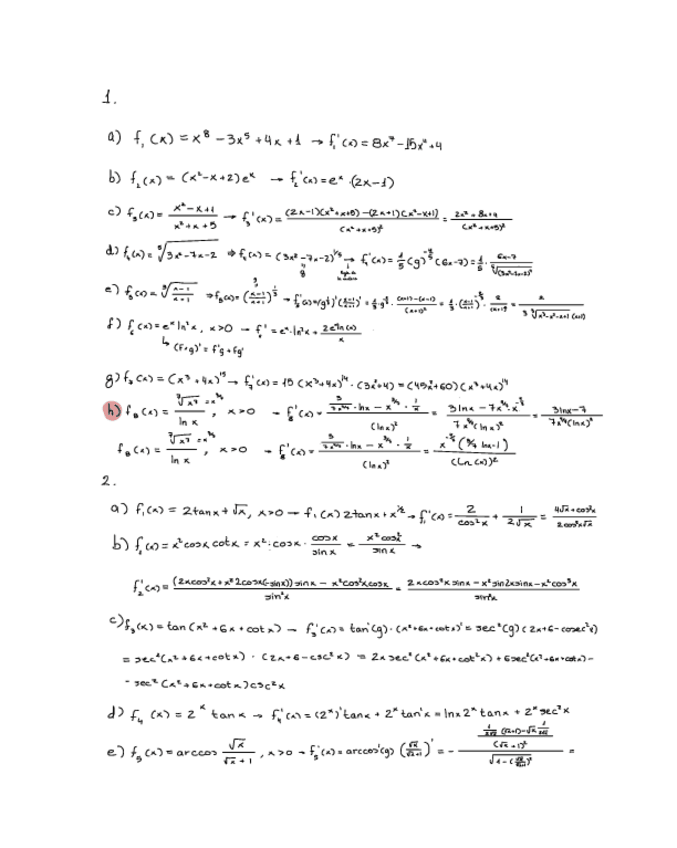 1.
a) f₁(x) = x⁸ - 3x⁵ + 4x + 1 → f₁'(x) = 8x⁷ - 15x⁴ + 4
b) f₂(x) = (x² - x + 2)eˣ → f₂'(x) = eˣ·(2x-1)
c) f₃(x) = (x² - x + 1)/(x² + x + 5) → f₃'(x) = ((2x-1)(x²+x+5) - (2x+1)(x²-x+1))/(x²+x+5)² = /(x²+x+5)²
d) f₄(x) = ⁵√(3x²-7x-2) ⇒ f₄(x) = (3x²-7x-2)^(1/5) → f₄'(x) = 1/5 (g)^(-4/5) (6x-7) = 1/5 ·
e) f₅(x) = ³√((x-1)/(x+1)) ⇒ f₅(x) = ((x-1)/(x+1))^(1/3) →
f) f₆(x) = eˣ ln²x, x>0 → f₆' = eˣ·ln²x + 2eˣln(x)/x
↳ (f+g)' = f'g + fg'
g) f₇(x) = (x³ + 4x)¹⁵ → f₇'(x) = 15(x³+4x)¹⁴ · (3x²+4) = (45x²+60)(x³+4x)¹⁴
h) f₈(x) = ⁷√x³ = x^(3/7) / ln x, x>0 → f₈'(x) = /(lnx)² = = (3lnx - 7)/(7x^(4/7)(lnx)²)
f₈(x) = ⁷√x³ = x^(3/7) / ln x, x>0 → f₈'(x) = /(lnx)² = /(ln(x))²
2.
a) f₁(x) = 2tanx + √x, x>0 → f₁(x) 2tanx + x^(1/2) → f₁'(x) = 2/cos²x + 1/(2√x) = (4√x + cos²x)/(2cos²x√x)
b) f₂(x) = x²cosx cotx = x²·cosx · cosx/sinx = x²cos²x/sinx →
f₂'(x) = ((2xcos²x + x²2cosx(-sinx))sinx - x²cos²x cosx)/sin²x = (2xcos²x sinx - x²sin2x sinx - x²cos³x)/sin²x
c) f₃(x) = tan(x² + 6x + cotx) → f₃'(x) = tan'(g)·(x²+6x+cotx)' = sec²(g)(2x+6-cosec²x)
= sec²(x²+6x+cotx) · (2x+6-csc²x) = 2x sec²(x²+6x+cot²x) + 6sec²(x²+6x+cotx) -
- sec²(x²+6x+cotx)csc²x
d) f₄(x) = 2ˣ tanx → f₄'(x) = (2ˣ)'tanx + 2ˣ tan'x = lnx 2ˣ tanx + 2ˣ sec²x
e) f₅(x) = arccos √x/(√x+1), x>0 → f₅'(x) = arccos'(g) (√x/(√x+1))' = - =